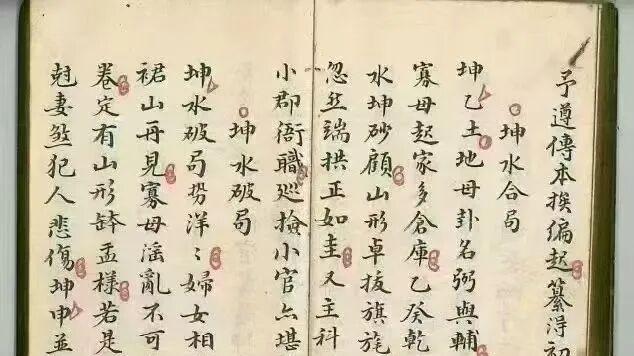 予遵傳本挨編起纂得初
坤水合局
坤乙土地母卦名弼與輔
寡母起家多倉庫乙癸乾
水坤砂顧山形卓拔旗旄
忽然端拱正如圭又主科
小郡衙職巡撿小官亦堪
坤水破局
坤水破局势洋〻婦女相
裙山再見寡母淫亂不可
卷定有山形缽盂樣若是
尅妻煞犯人悲傷坤申並